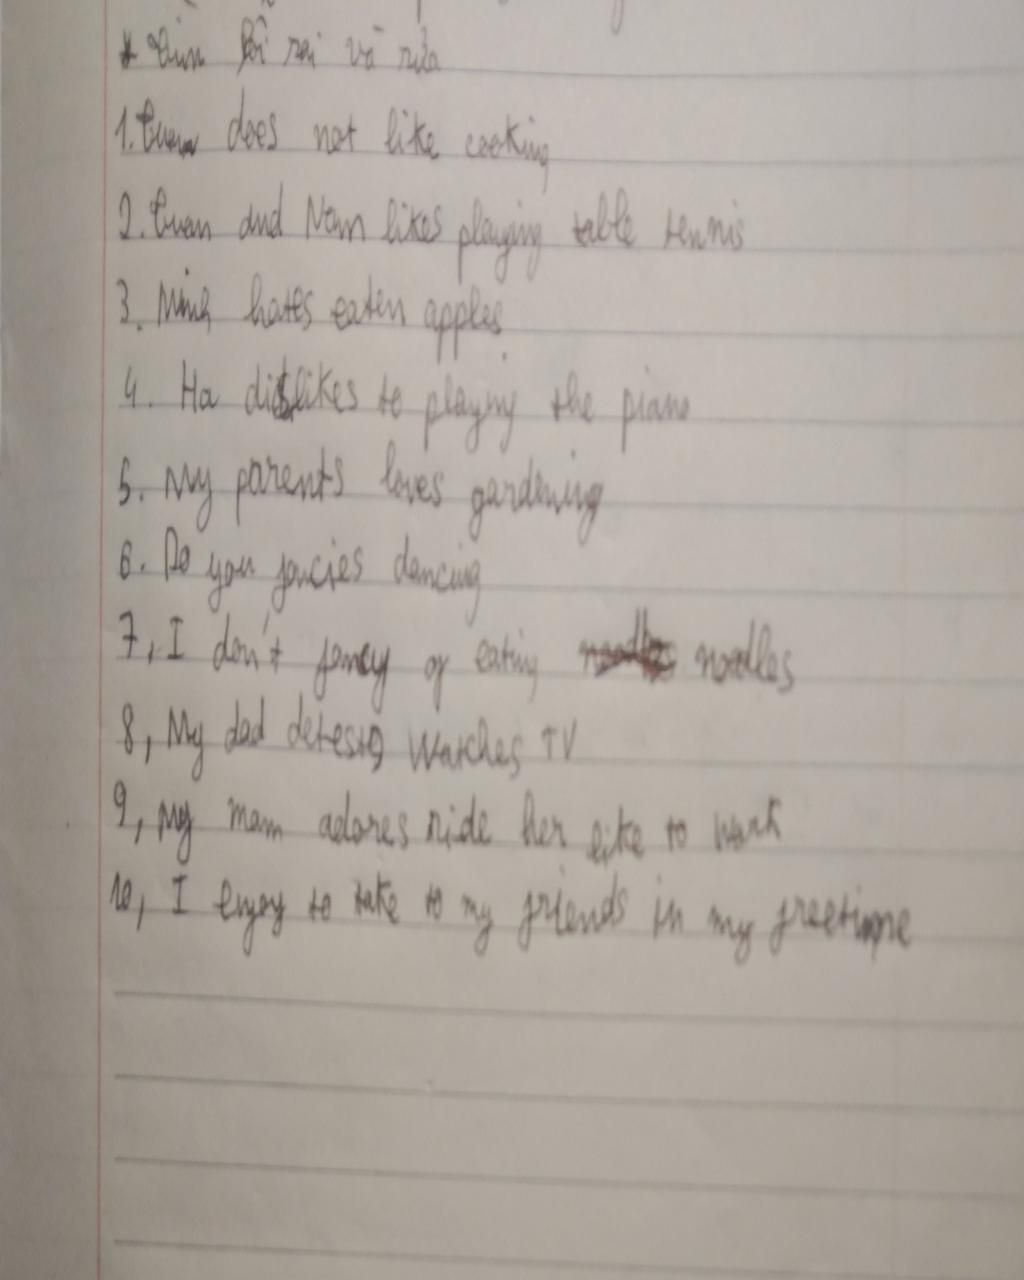 * Tìm lỗi sai và sửa
1. Quan does not like cooking
2. Quan and Nam likes playing table tennis
3. Minh hates eaten apples
4. Ha dislikes to playing the piano
5. My parents loves gardening
6. Do you fancies dancing
7, I don't fancy of eating noodles
8, My dad detests watches TV
9, My mom adores ride her bike to work
10, I enjoy to take to my friends in my freetime